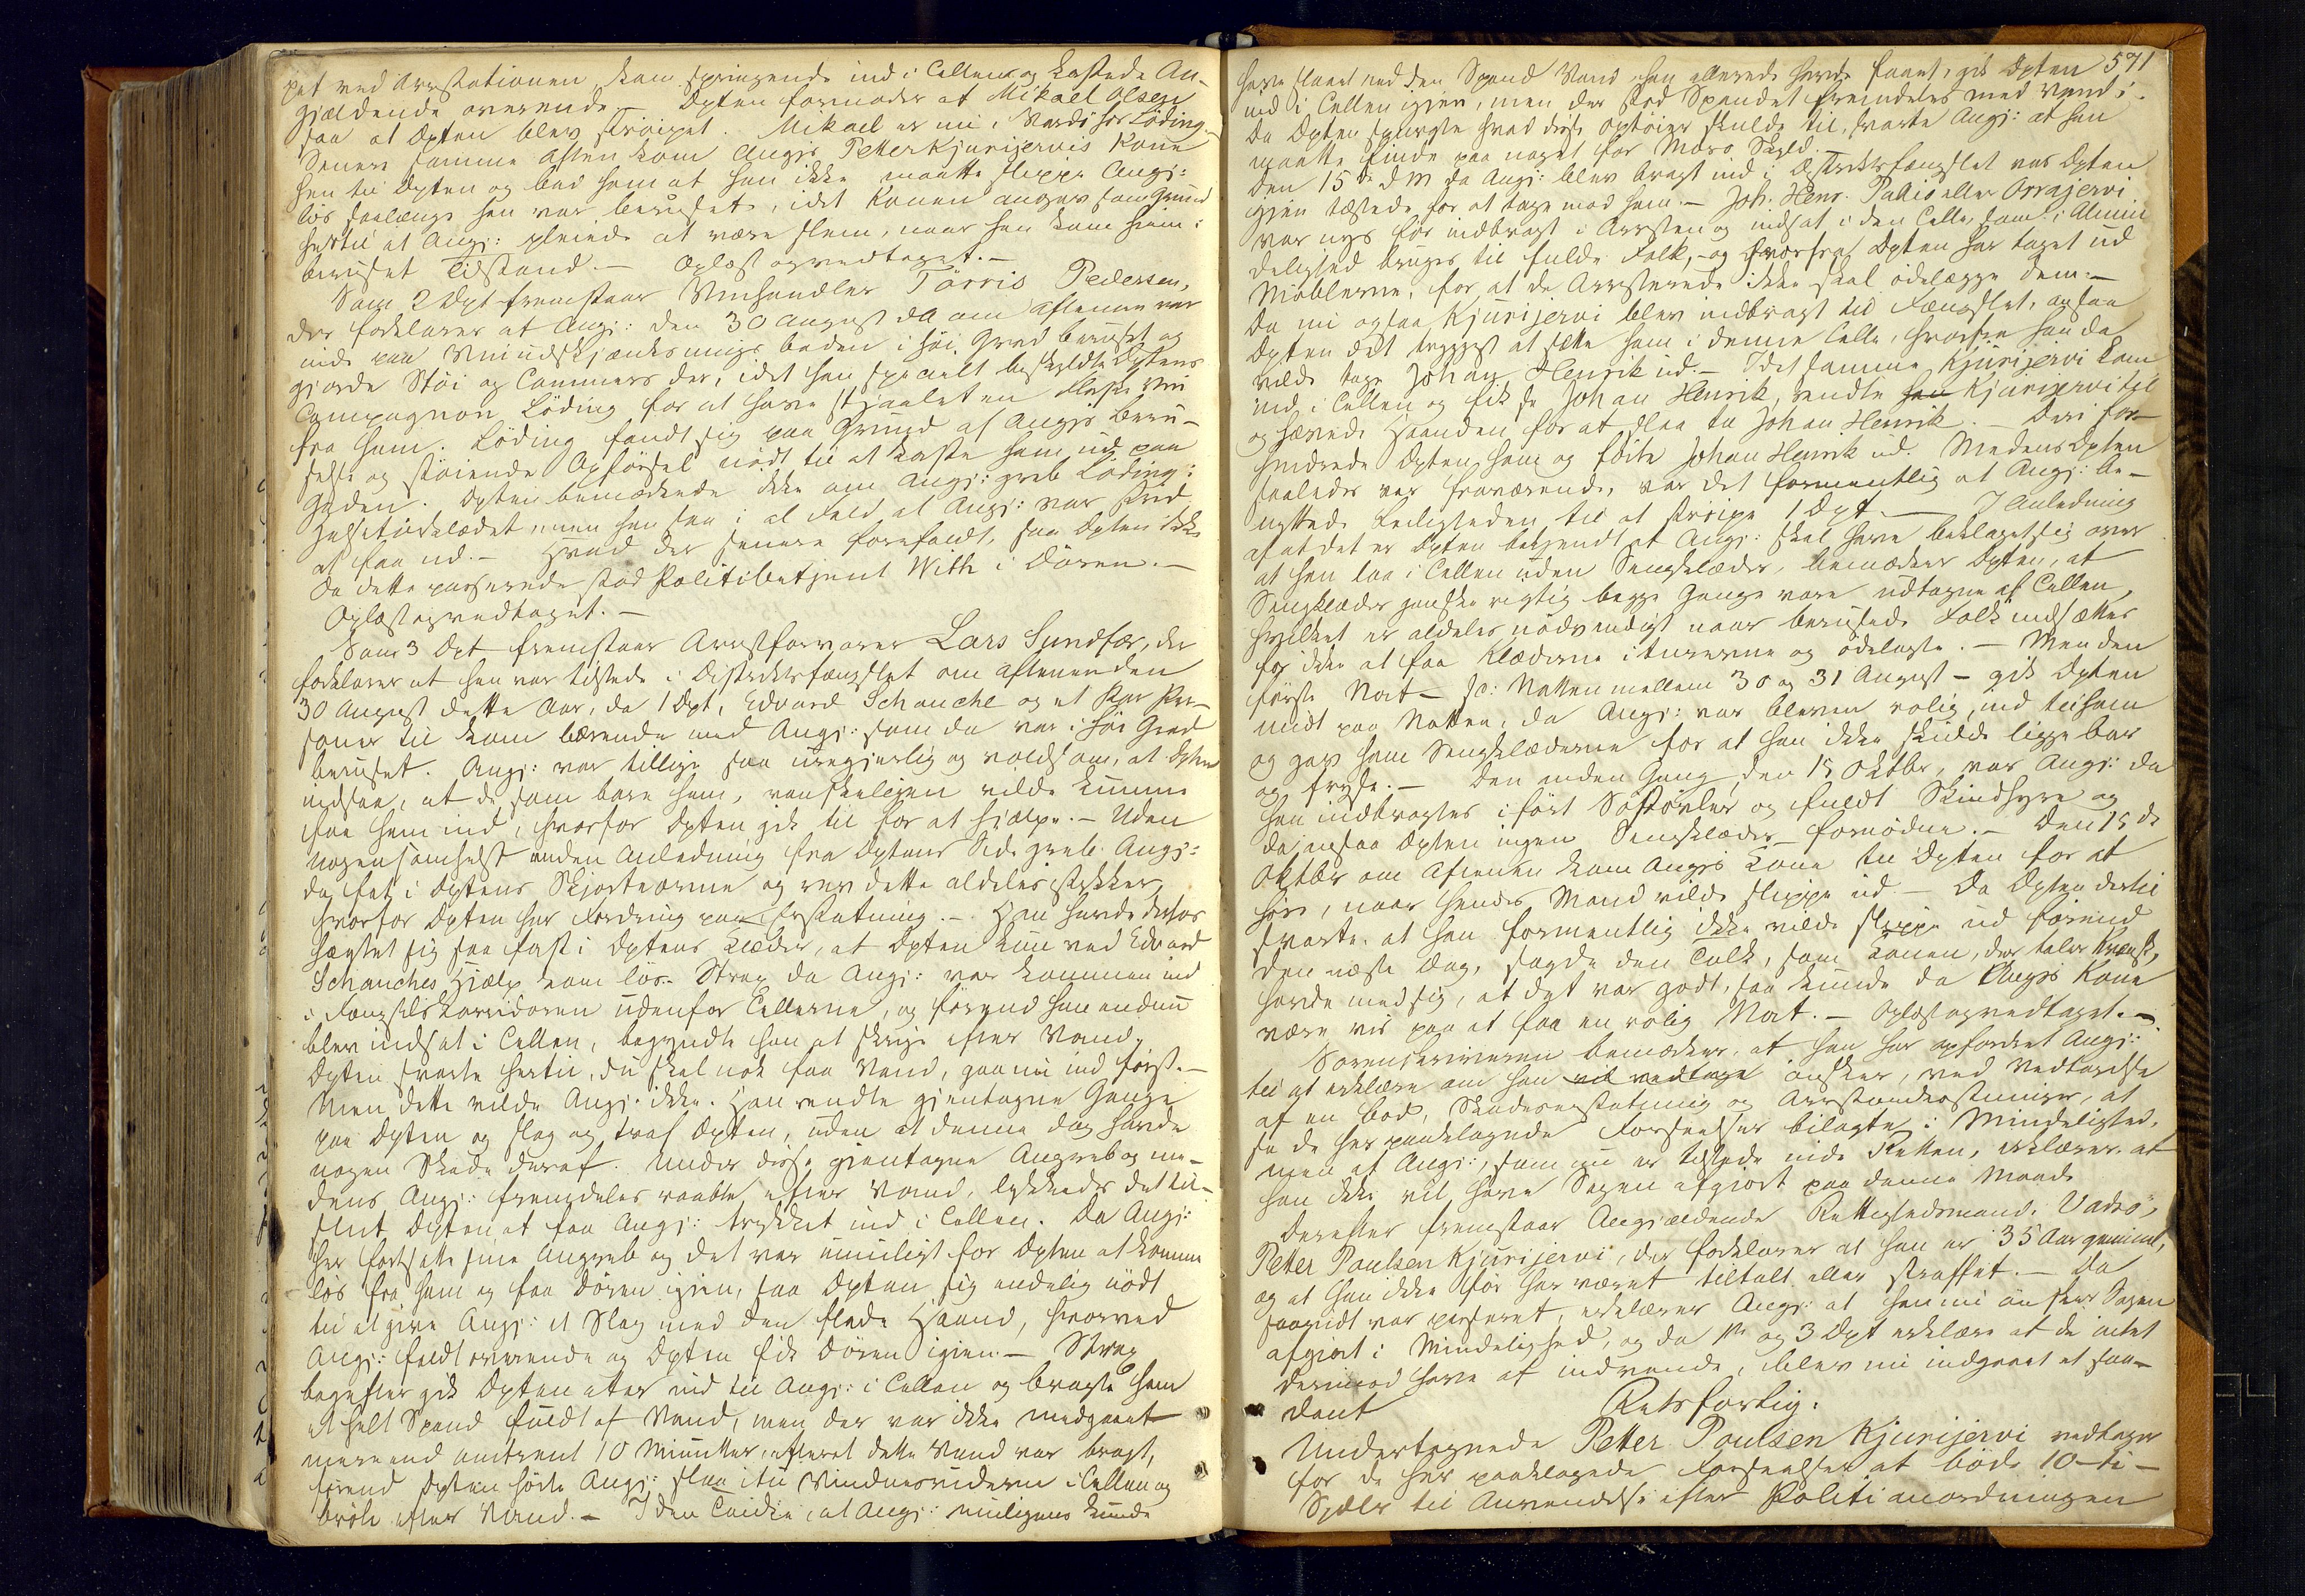 pet ved Arrestationen kom springende ind i Cellen og kastede An-
gjældende overende. – Dpten formoder at Mikael Olsen
saa at Dpten blev skreiget. Mikael er nu i Vardö hos Löding.
Senere samme Aften kom Angjs Petter Kjurijervis Kone
hen til Dpten og bad ham at han ikke maatte slippe Angj:
lös saalænge han var beruset, idet Konen angav som Grund
hertil at Angj: pleiede at være slem, naar han kom hjem i
beruset Tilstand. – Oplæst og vedtaget. –
Som 2 Dpt fremstaar Vinhandler Törris Pedersen,
der forklarer at Angj: den 30 August d A om Aftenen var
inde paa Vinudskjænknings boden i höi Grad beruset og
gjorde Stöi og Commers der, idet han specielt beskyldte Dptens
Compagnon Löding for at have stjaalet en Flaske Vin
fra ham. Löding fandt sig paa Grund af Angjs beru-
selse og stöiende Opförsel nödt til at kaste ham ud paa
Gaden. Dpten bemærkede ikke om Angj: greb Löding i
Halstörklædet, men han saa i al Fald at Angj: var stred
at faa ud. – Hvad der senere forefaldt, saa Dpten ikke
Da dette passerede stod Politibetjent With i Dören. –
Oplæst og vedtaget. –
Som 3 Dpt fremstaar Arrestforvarer Lars Sundfær, der
forklarer at han var tilstede i Distriktsfængslet om Aftenen den
30 August dette Aar, da 1 Dpt, Edvard Schanche og et Par Per-
soner til kom bærende med Angj: som da var i höi Grad
beruset. Angj: var tillige saa uregjerlig og voldsom, at Dpten
indsaa, at de, som bare ham, vanskeligen vilde kunne
faa ham ind, hvorfor Dpten gik til for at hjælpe. – Uden
nogensomhelst anden Anledning fra Dptens Side greb Angj:
da fat i Dptens Skjorteærme og rev dette aldeles istykker,
hvorfor Dpten har Fordring paa Erstatning. – Han havde derhos
hægtet sig saa fast i Dptens Klæder, at Dpten kun ved Edvard
Schanches Hjælp kom lös. Strax da Angj: var kommen ind
i Fængselskorridoren udenfor Cellerne, og förend han endnu
blev indsat i Cellen, begyndte han at skrige efter Vand.
Dpten svarte hertil, du skal nok faa Vand, gaa nu ind först. –
Men dette vilde Angj: ikke. Han rendte gjentagne Gange
paa Dpten og slog og traf Dpten, uden at denne dog havde
nogen Skade deraf. Under disse gjentagne Angreb og me-
dens Angj: fremdeles raabte efter Vand, lykkedes det til-
slut Dpten at faa Angj: trykket ind i Cellen. Da Angj:
her fortsatte sine Angreb og det var umuligt for Dpten at komme
lös fra ham og faa Dören igjen, saa Dpten sig endelig nödt
til at give Angj: et Slag med den flade Haand, hvorved
Angj: faldt overende og Dpten fik Dören igjen. – Strax
bagefter gik Dpten atter ind til Angj: i Cellen og bragte ham
et helt Spand fuldt af Vand, men der var ikke medgaaet
mere end omtrent 10 Minutter, efterat dette Vand var bragt,
förend Dpten hörte Angj: slaa itu Vinduesruderne i Cellen og
bröle efter Vand. – I den Tanke, at Angj: muligens kunde
571
have slaaet ned den Spand Vand han allerede havde faaet, gik Dpten
ind i Cellen igjen, men der stod Spandet fremdeles med Vand i.
Da Dpten spurgte hvad disse Optöier skulde til, svarte Angj: at han
maatte finde paa noget for Moro Skyld.
Den 15de d M da Angj: blev bragt ind i Distriktsfængslet var Dpten
igjen tilstede for at tage mod ham. – Joh. Henr. Pakis eller Orrajervi
var nys för indbragt i Arresten og indsat i den Celle, som i Almin
delighed bruges til fulde Folk, og hvorfra Dpten har taget ud
Möblerne, for at de Arresterede ikke skal ödelægge dem. –
Da nu ogsaa Kjurijervi blev indbragt til Fængslet, ansaa
Dpten det tryggest at sætte ham i denne Celle, hvorfra han da
vilde tage Johan Henrik ud. – Idet samme Kjurijervi kom
ind i Cellen og fik se Johan Henrik, rendte han Kjurijervi til
og hævede Haanden for at slaa til Johan Henrik. – Deri for-
hindrede Dpten ham og förte Johan Henrik ud. Medens Dpten
saaledes var fraværende, var det formentlig at Angj: be-
nyttede Leiligheden til at skreige 1 Dpt. – I Anledning
af at det er Dpten bekjendt at Angj: skal have beklaget sig over
at han laa i Cellen uden Sengklæder, bemærker Dpten, at
Sengklæder ganske rigtig begge Gange vare udtagne af Cellen,
hvilket er aldeles nödvendigt naar berusede Folk indsættes
for ikke at faa Klæderne iturevne og ödelagte. – Men den
förste Nat – sc: Natten mellem 30 og 31 August – gik Dpten
midt paa Natten, da Angj: var bleven rolig, ind til ham
og gav ham Sengklæderne for at han ikke skulde ligge bar
og fryse. – Den anden Gang, den 15 Oktbr, var Angj: da
han indbragtes iført Söstövler og fuldt Skindhyre og
da ansaa Dpten ingen Sengklæder fornödne. – Den 15de
Oktbr om Aftenen kom Angjs Kone til Dpten for at
höre, naar hendes Mand vilde slippe ud. – Da Dpten dertil
svarte, at han formentlig ikke vilde slippe ud förend
den næste Dag, sagde den Tolk, som Konen, der taler Kvænsk,
havde med sig, at det var godt, saa kunde da Angjs Kone
være vis paa at faa en rolig Nat. – Oplæst og vedtaget. –
Sorenskriveren bemærker, at han har opfordret Angj:
til at erklære om han vil vedtage önsker, ved Vedtagelse
af en Bod, Skadeserstatning og Arrestomkostninger, at
se de her paaklagede Forseelser bilagte i Mindelighed,
men at Angj:, som nu er tilstede inde Retten, erklærer at
han ikke vil have Sagen afgjort paa denne Maade
Derefter fremstaar Angjældende Rettighedsmand i Vadsö,
Petter Poulsen Kjurijervi, der forklarer at han er 35 Aar gammel,
og at han ikke för har været tiltalt eller straffet. – Da
saavidt var passeret, erklærer Angj: at han nu önsker Sagen
afgjort i Mindelighed, og da 1te og 3 Dpt erklære at de intet
derimod have at indvende, blev nu indgaaet et saa-
dant
Retsforlig.
Undertegnede Petter Poulsen Kjurijervi vedtager
for de her paaklagede Forseelser at böde 10 – ti –
Spdlr til Anvendelse efter Politianordningen